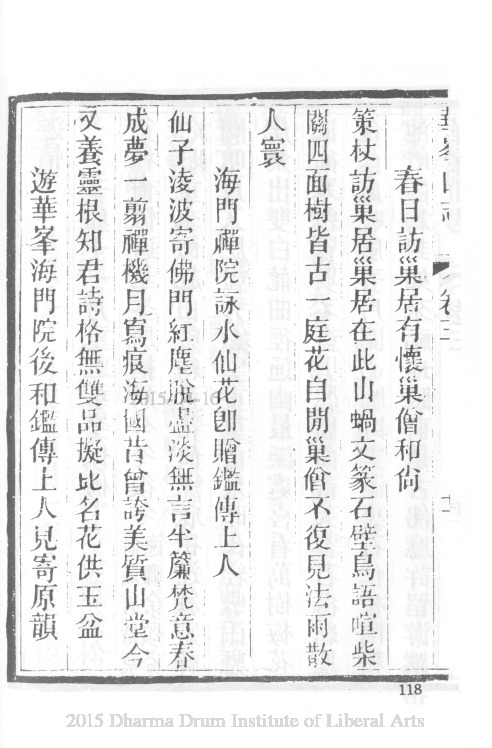 華峯山志 卷三 十一
春日訪巢居有懷巢僧和尙
策杖訪巢居巢居在此山蝸文篆石壁鳥語喧柴
關四面樹皆古一庭花自開巢僧不復見法雨散
人寰
海門禪院詠水仙花卽贈鑑傳上人
仙子淩波寄佛門紅塵脫盡淡無言半簾梵意春
成夢一剪禪機月寫痕海國昔曾誇美質山堂今
又養靈根知君詩格無雙品擬比名花供玉盆
遊華峯海門院後和鑑傳上人見寄原韻
118
2015 Dharma Drum Institute of Liberal Arts